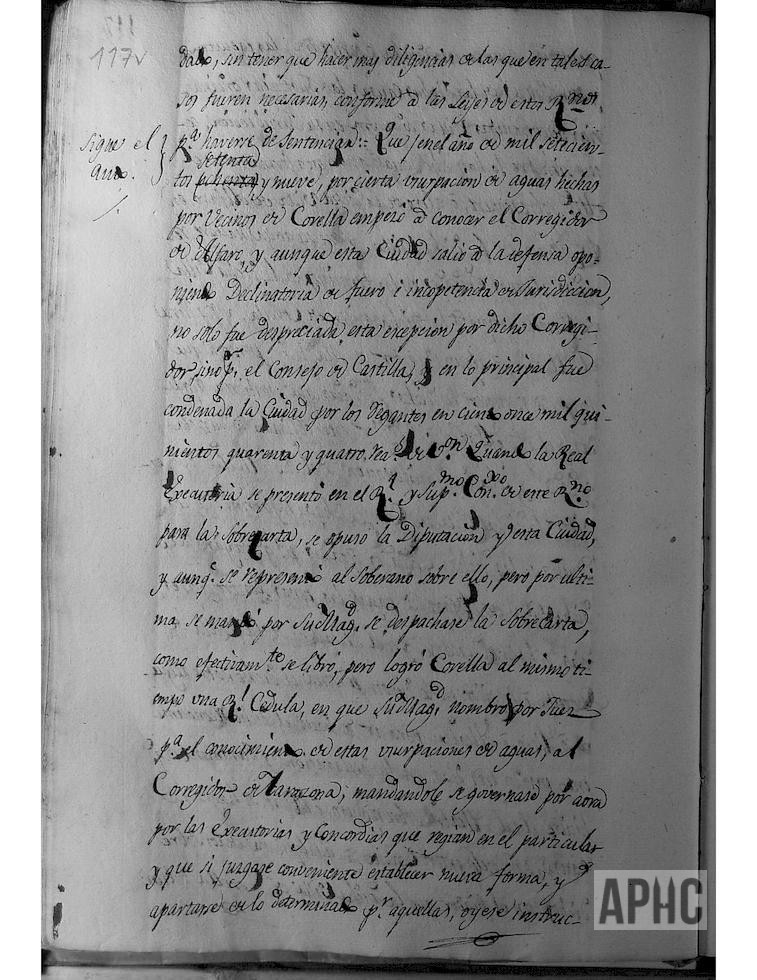 117v
dado, sin tener que hacer mas diligencias de las que en tales ca-
sos fueren necesarias, conforme a las Leyes de estos R.nos
sigue el
auto.
p.a haverse de Sentenciar:= Que en el año de mil setecien-
setenta
tos ochenta y nueve, por cierta vsurpacion de aguas hechas
por Vecinos de Corella empezó a conocer el Corregidor
de Alfaro, y aunque esta Ciudad salió a la defensa opo-
niendo Declinatoria de fuero é incopetencia de Jurisdiccion,
no solo fue despreciada esta excepcion por dicho Corregi-
dor, sino p.r el Consejo de Castilla, y en lo principal fue
condenada la Ciudad por los Regantes en ciento once mil qui-
nientos quarenta y quatro rea.s de v.on Quando la Real
Executoria se presentó en el R.l y Sup.mo Con.xo de este R.no
para la Sobrecarta, se opuso la Diputacion y esta Ciudad,
y aunq.e se representó al Soberano sobre ello, pero por ulti-
ma se mandó por Su Mag.d se despachase la Sobrecarta,
como efectivam.te se libró, pero logró Corella al mismo ti-
empo vna R.l Cedula, en que Su Mag.d nombró por Juez
p.a el conocimiento de estas vsurpaciones de aguas, al
Corregidor de Tarazona; mandandole se governase por aora
por las Executorias y Concordias que regian en el particular
y que si juzgase conveniente establecer nueva forma, y
apartarse de lo determinado p.r aquellas, oyese instruc-
APHC